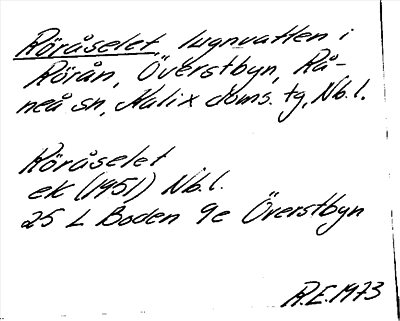 Röråselet, lugnvatten i
Rörån, Överstbyn, Rå-
neå sn, Kalix doms. tg, Nb. l.
Röråselet
ek (1951) Nb.l.
25 L Boden 9e Överstbyn
R.E. 1973